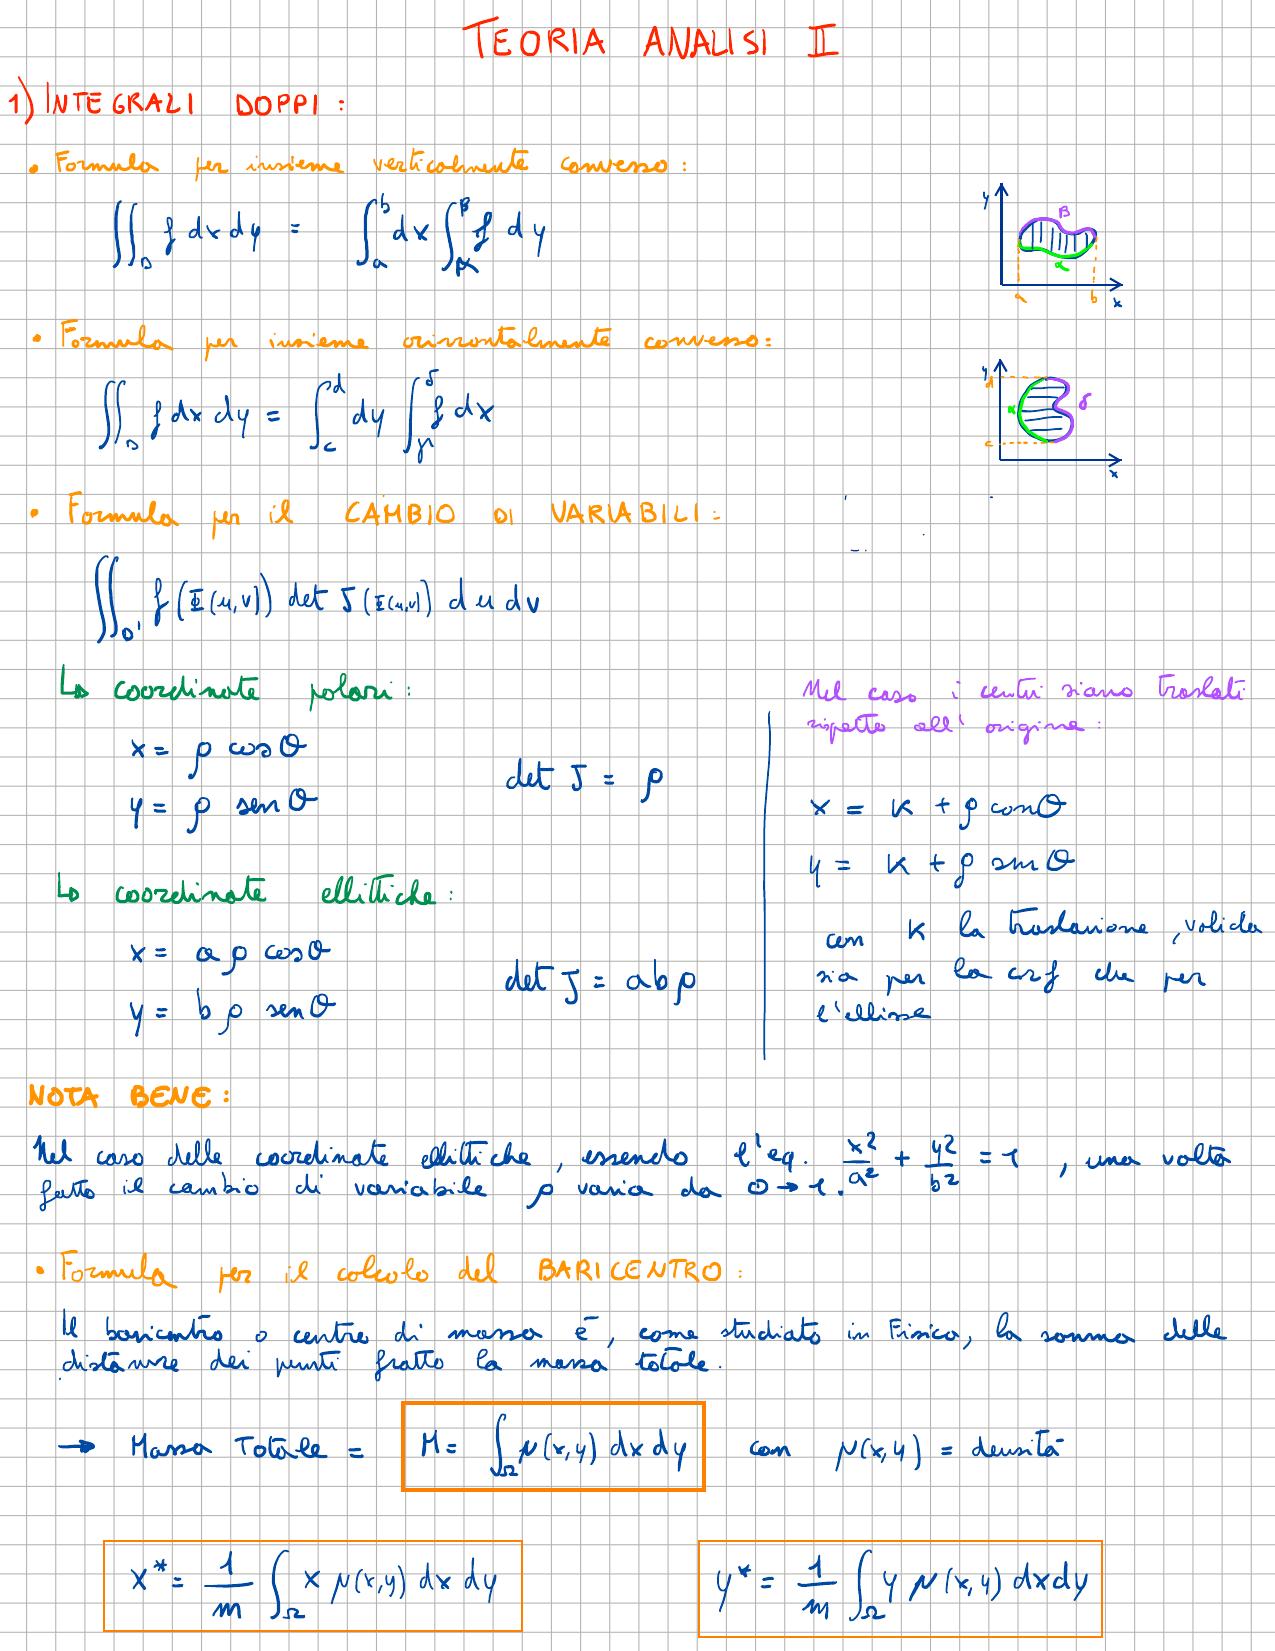 TEORIA ANALISI II
1) INTEGRALI DOPPI :
• Formula per insieme verticalmente convesso :
∬_D f dx dy = ∫_a^b dx ∫_α^β f dy
y β α a b x
• Formula per insieme orizzontalmente convesso :
∬_D f dx dy = ∫_c^d dy ∫_γ^δ f dx
y d α δ c x
• Formula per il CAMBIO DI VARIABILI :
∬_D' f (Φ(u,v)) det J (Φ(u,v)) du dv
↳ coordinate polari :
x = ρ cos θ
y = ρ sen θ
det J = ρ
↳ coordinate ellittiche :
x = a ρ cos θ
y = b ρ sen θ
det J = a b ρ
Nel caso i centri siano traslati
rispetto all' origine :
x = K + ρ cos θ
y = K + ρ sen θ
con K la traslazione, valida
sia per la crf che per
l'ellisse
NOTA BENE :
Nel caso delle coordinate ellittiche, essendo l'eq. x²/a² + y²/b² = 1 , una volta
fatto il cambio di variabile ρ varia da 0 → 1.
• Formula per il calcolo del BARICENTRO :
Il baricentro o centro di massa è, come studiato in Fisica, la somma delle
distanze dei punti fratto la massa totale.
→ Massa Totale = M = ∫_Ω μ(x,y) dx dy con μ(x,y) = densità
x* = 1/m ∫_Ω x μ(x,y) dx dy
y* = 1/m ∫_Ω y μ(x,y) dx dy